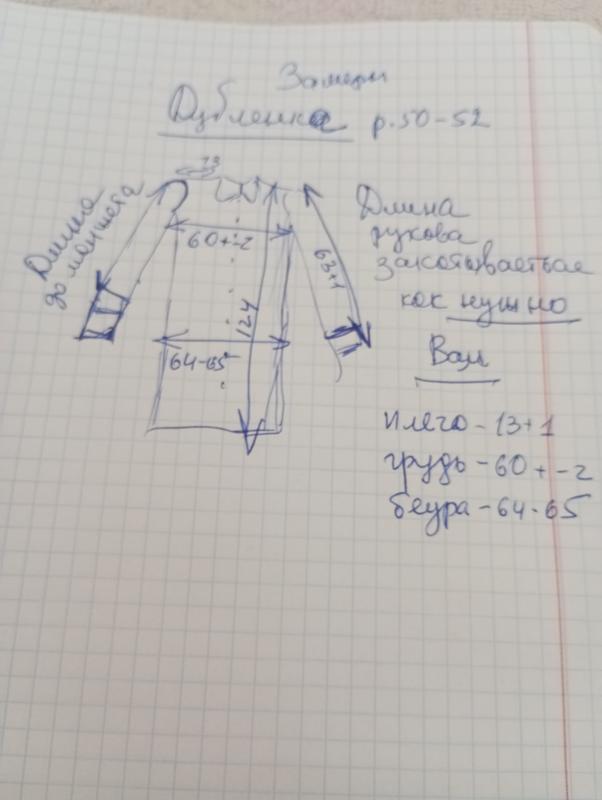 Замеры
Дубленка р.50-52
13
Длина
до манжета
60+-2
63+1
124
64-65
Длина
рукова
закатывается
как нушно
Вам
плечо - 13+1
грудь - 60+-2
бедра - 64-65